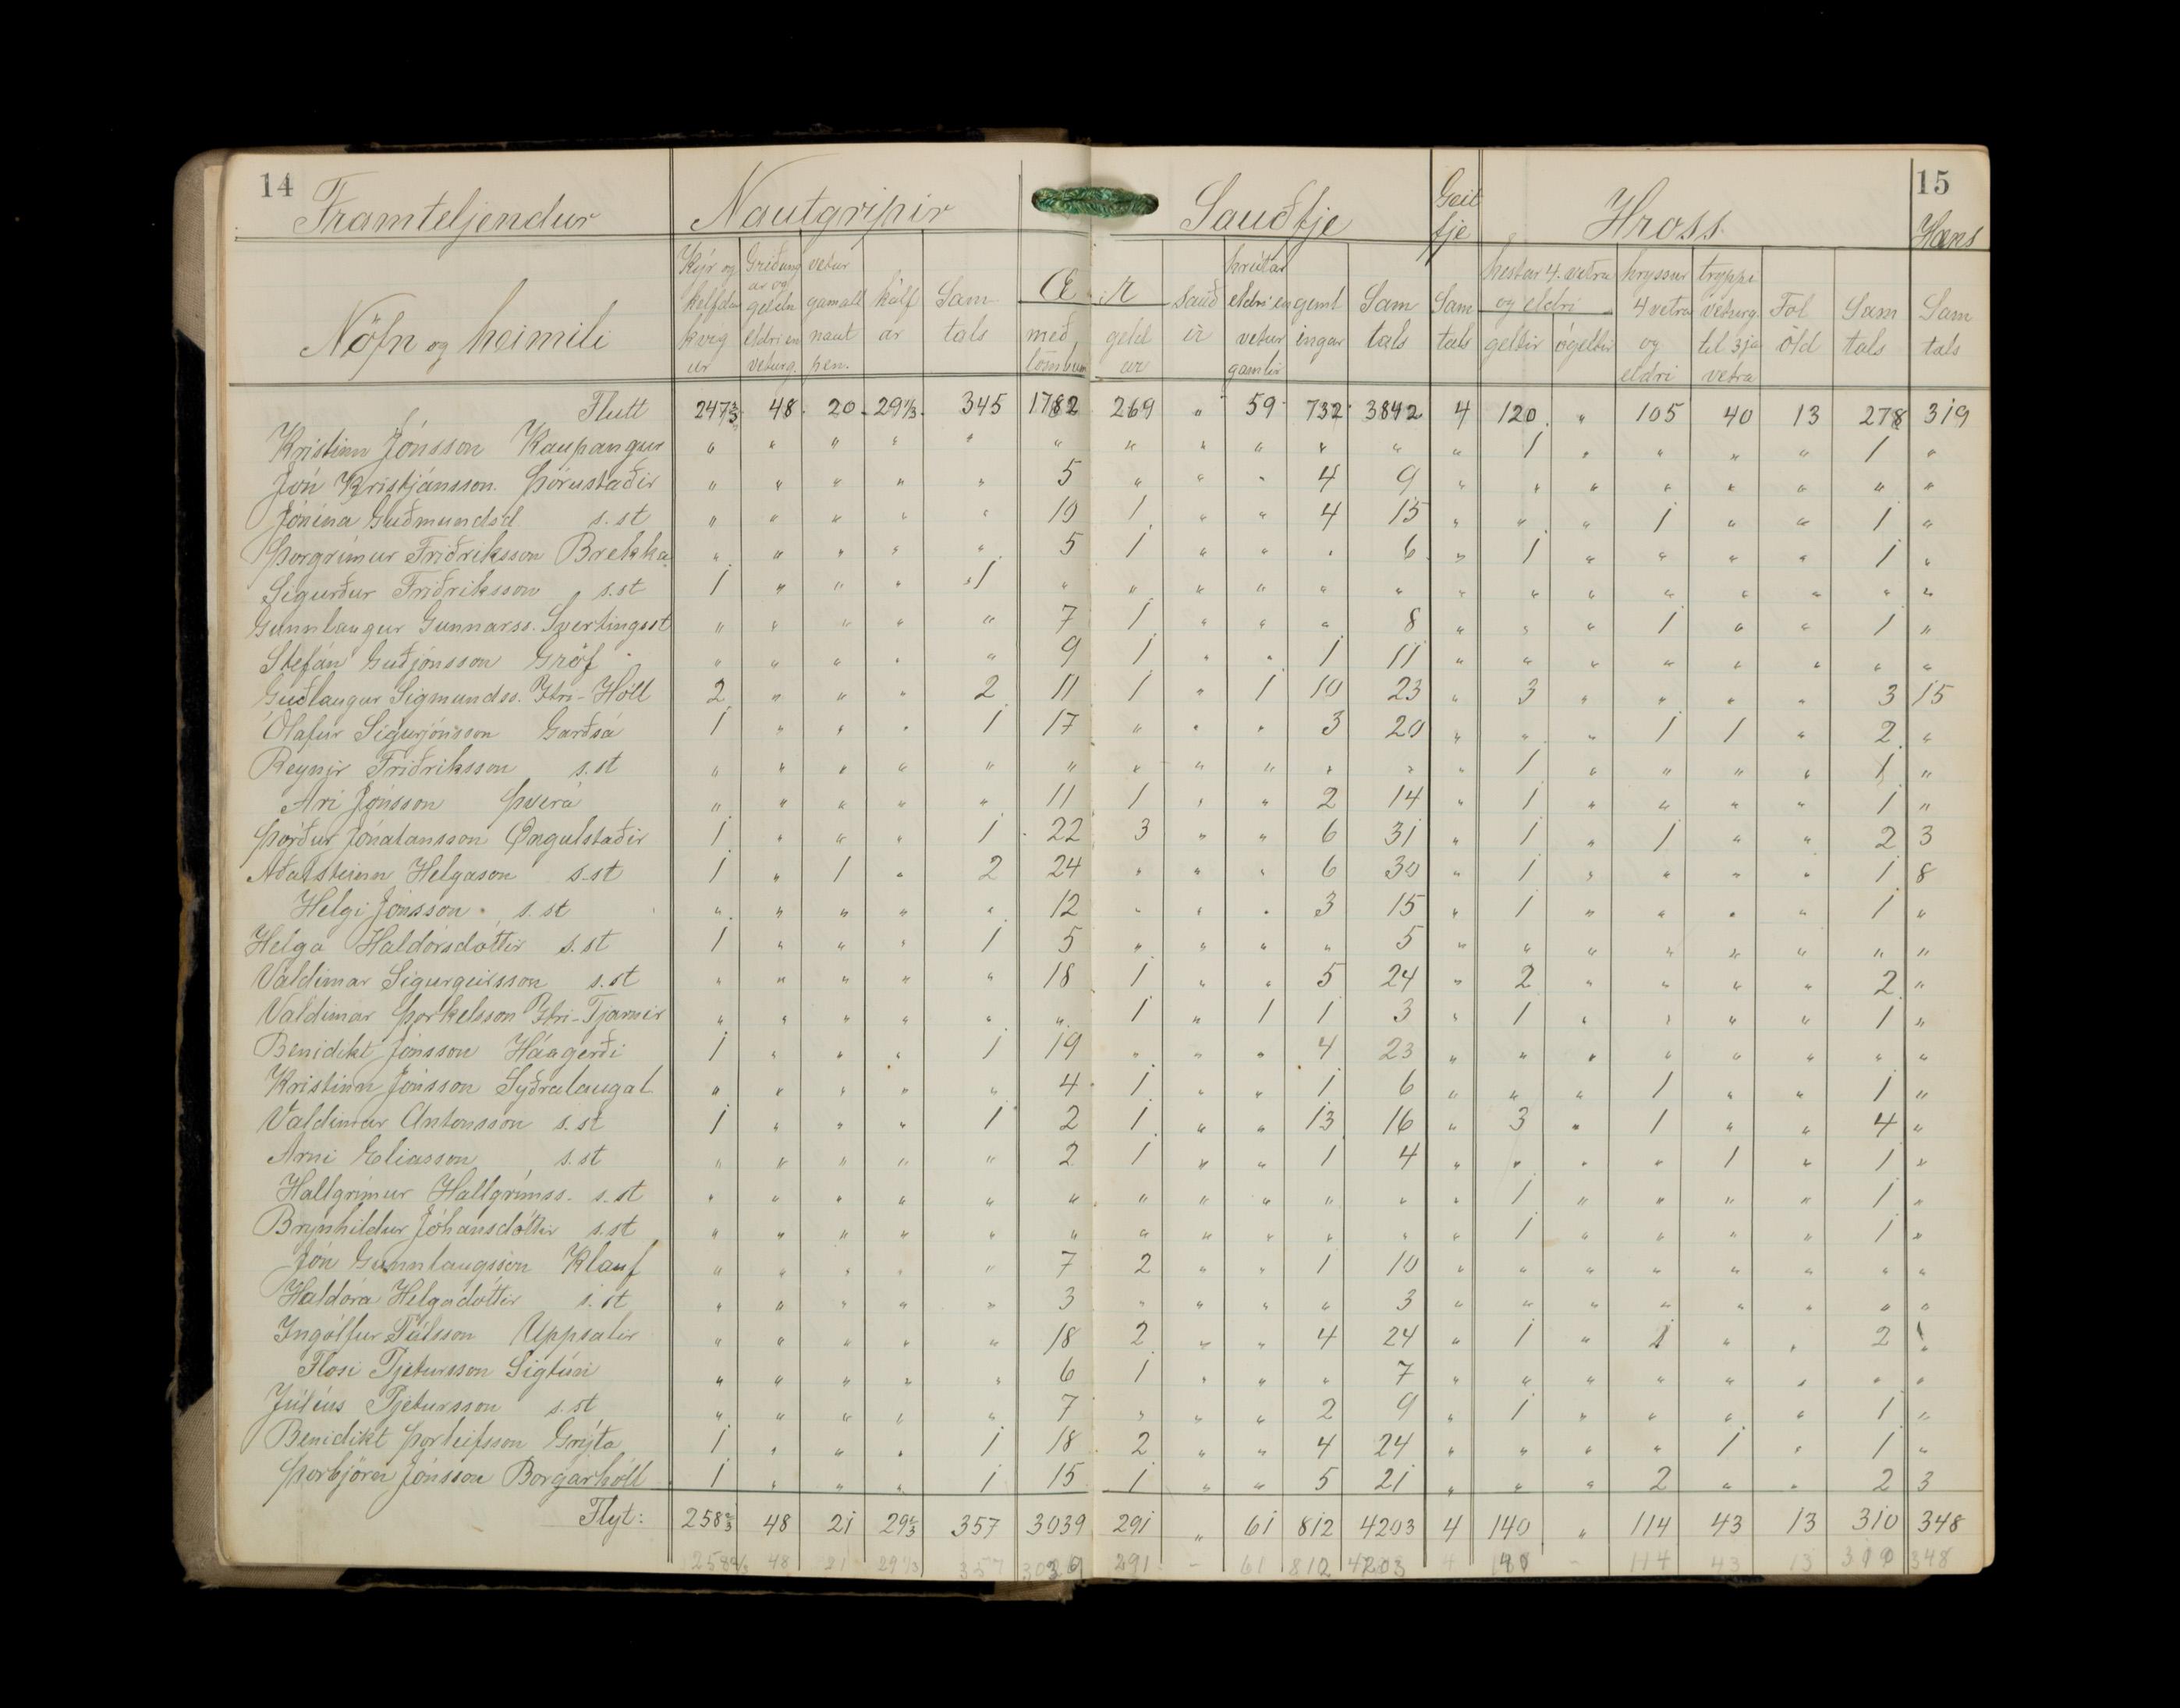 14 15
Framteljendur Nautgripir Sauðfje Geit fje Hross Hæns
Nöfn og heimili
Kýr og kelfdar kvig ur
Griðung ar og geldn eldri en veturg.
vetur gamall naut pen.
kálf ar
Sam tals
Æ r
með lömbum
geld ar
sauð ir
hrútar eldri en vetur gamlir
geml ingar
Sam tals
Sam tals
hestar 4. vetra og eldri
geltir
ógeltir
hryssur 4 vetra og eldri
tryppi veturg. til 3ja vetra
Fol öld
Sam tals
Sam tals
Flutt 247⅔ 48 20 29⅓ 345 1782 269 " 59 732 3842 4 120 " 105 40 13 278 319
Kristinn Jónsson Kaupangur " " " " " " " " " " " " 1 " " " " 1 "
Jón Kristjánsson. Þórustaðir " " " " " 5 " " " 4 9 " " " " " " " "
Jónína Guðmundsd. s. st " " " " " 10 1 " " 4 15 " " " 1 " " 1 "
Þorgrímur Friðriksson Brekka " " " " " 5 1 " " " 6 " 1 " " " " 1 "
Sigurður Friðriksson s. st 1 " " " 1 " " " " " " " " " " " " " "
Gunnlaugur Gunnarss. Svertingsst " " " " " 7 1 " " " 8 " " " 1 " " 1 "
Stefán Guðjónsson Gröf " " " " " 9 1 " " 1 11 " " " " " " " "
Guðlaugur Sigmundss. Ytri-Hóll 2 " " " 2 11 1 " 1 10 23 " 3 " " " " 3 15
Ólafur Sigurjónsson Garðsá 1 " " " 1 17 " " " 3 20 " " " 1 1 " 2 "
Reynir Friðriksson s. st " " " " " " " " " " " " 1 " " " " 1 "
Ari Jónsson Þverá " " " " " 11 1 " " 2 14 " 1 " " " " 1 "
Þórður Jónatansson Öngulstaðir 1 " " " 1 22 3 " " 6 31 " 1 " 1 " " 2 3
Aðalsteinn Helgason s. st 1 " 1 " 2 24 " " " 6 30 " 1 " " " " 1 8
Helgi Jónsson s. st " " " " " 12 " " " 3 15 " 1 " " " " 1 "
Helga Haldórsdóttir s. st 1 " " " 1 5 " " " " 5 " " " " " " " "
Valdimar Sigurgeirsson s. st " " " " " 18 1 " " 5 24 " 2 " " " " 2 "
Valdimar Þorkelsson Ytri-Tjarnir " " " " " " 1 " 1 1 3 " 1 " " " " 1 "
Benidikt Jónsson Háagerði 1 " " " 1 19 " " " 4 23 " " " " " " " "
Kristinn Jónsson Syðralaugal. " " " " " 4 1 " " 1 6 " " " 1 " " 1 "
Valdimar Antonsson s. st 1 " " " 1 2 1 " " 13 16 " 3 " 1 " " 4 "
Arni Eliasson s. st " " " " " 2 1 " " 1 4 " " " " 1 " 1 "
Hallgrímur Hallgrímss. s. st " " " " " " " " " " " " 1 " " " " 1 "
Brynhildur Jóhansdóttir s. st " " " " " " " " " " " " 1 " " " " 1 "
Jón Gunnlaugsson Klauf " " " " " 7 2 " " 1 10 " " " " " " " "
Haldóra Helgadóttir s. st " " " " " 3 " " " " 3 " " " " " " " "
Ingólfur Pálsson Uppsalir " " " " " 18 2 " " 4 24 " 1 " 1 " " 2 "
Flosi Pjetursson Sigtúni " " " " " 6 1 " " " 7 " " " " " " " "
Júlíus Pjetursson s. st " " " " " 7 " " " 2 9 " 1 " " " " 1 "
Benidikt Þorleifsson Grýta 1 " " " 1 18 2 " " 4 24 " " " " 1 " 1 "
Þorbjörn Jónsson Borgarhóll 1 " " " 1 15 1 " " 5 21 " " " 2 " " 2 3
Flyt: 258⅔ 48 21 29⅓ 357 3039 291 " 61 812 4203 4 140 " 114 43 13 310 348
258⅔ 48 21 29⅓ 357 3039 291 - 61 812 4203 4 140 - 114 43 13 310 348